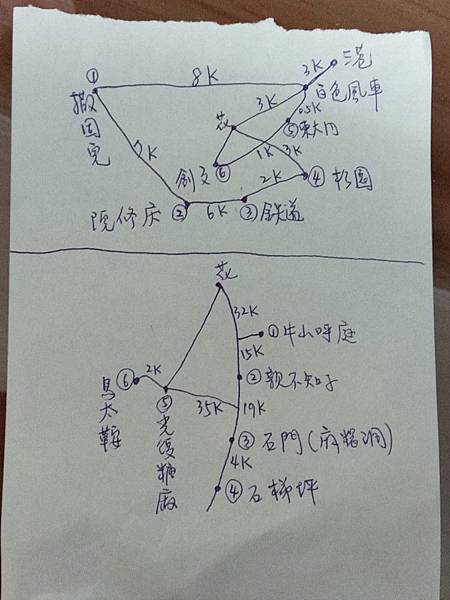 ① 8K 3K 三巷
撒固兒 3K 白色風車
花 .5K ⑤東大門
7K 創文⑥ 1K 3K
2K ④ 杉園
② 6K ③ 鉄道
花
32K
①牛山呼庭
15K
⑥ 2K ②親不知子
馬太鞍 ⑤ 35K 19K
光復糖廠 ③石門(麻糬洞)
4K
④石梯坪